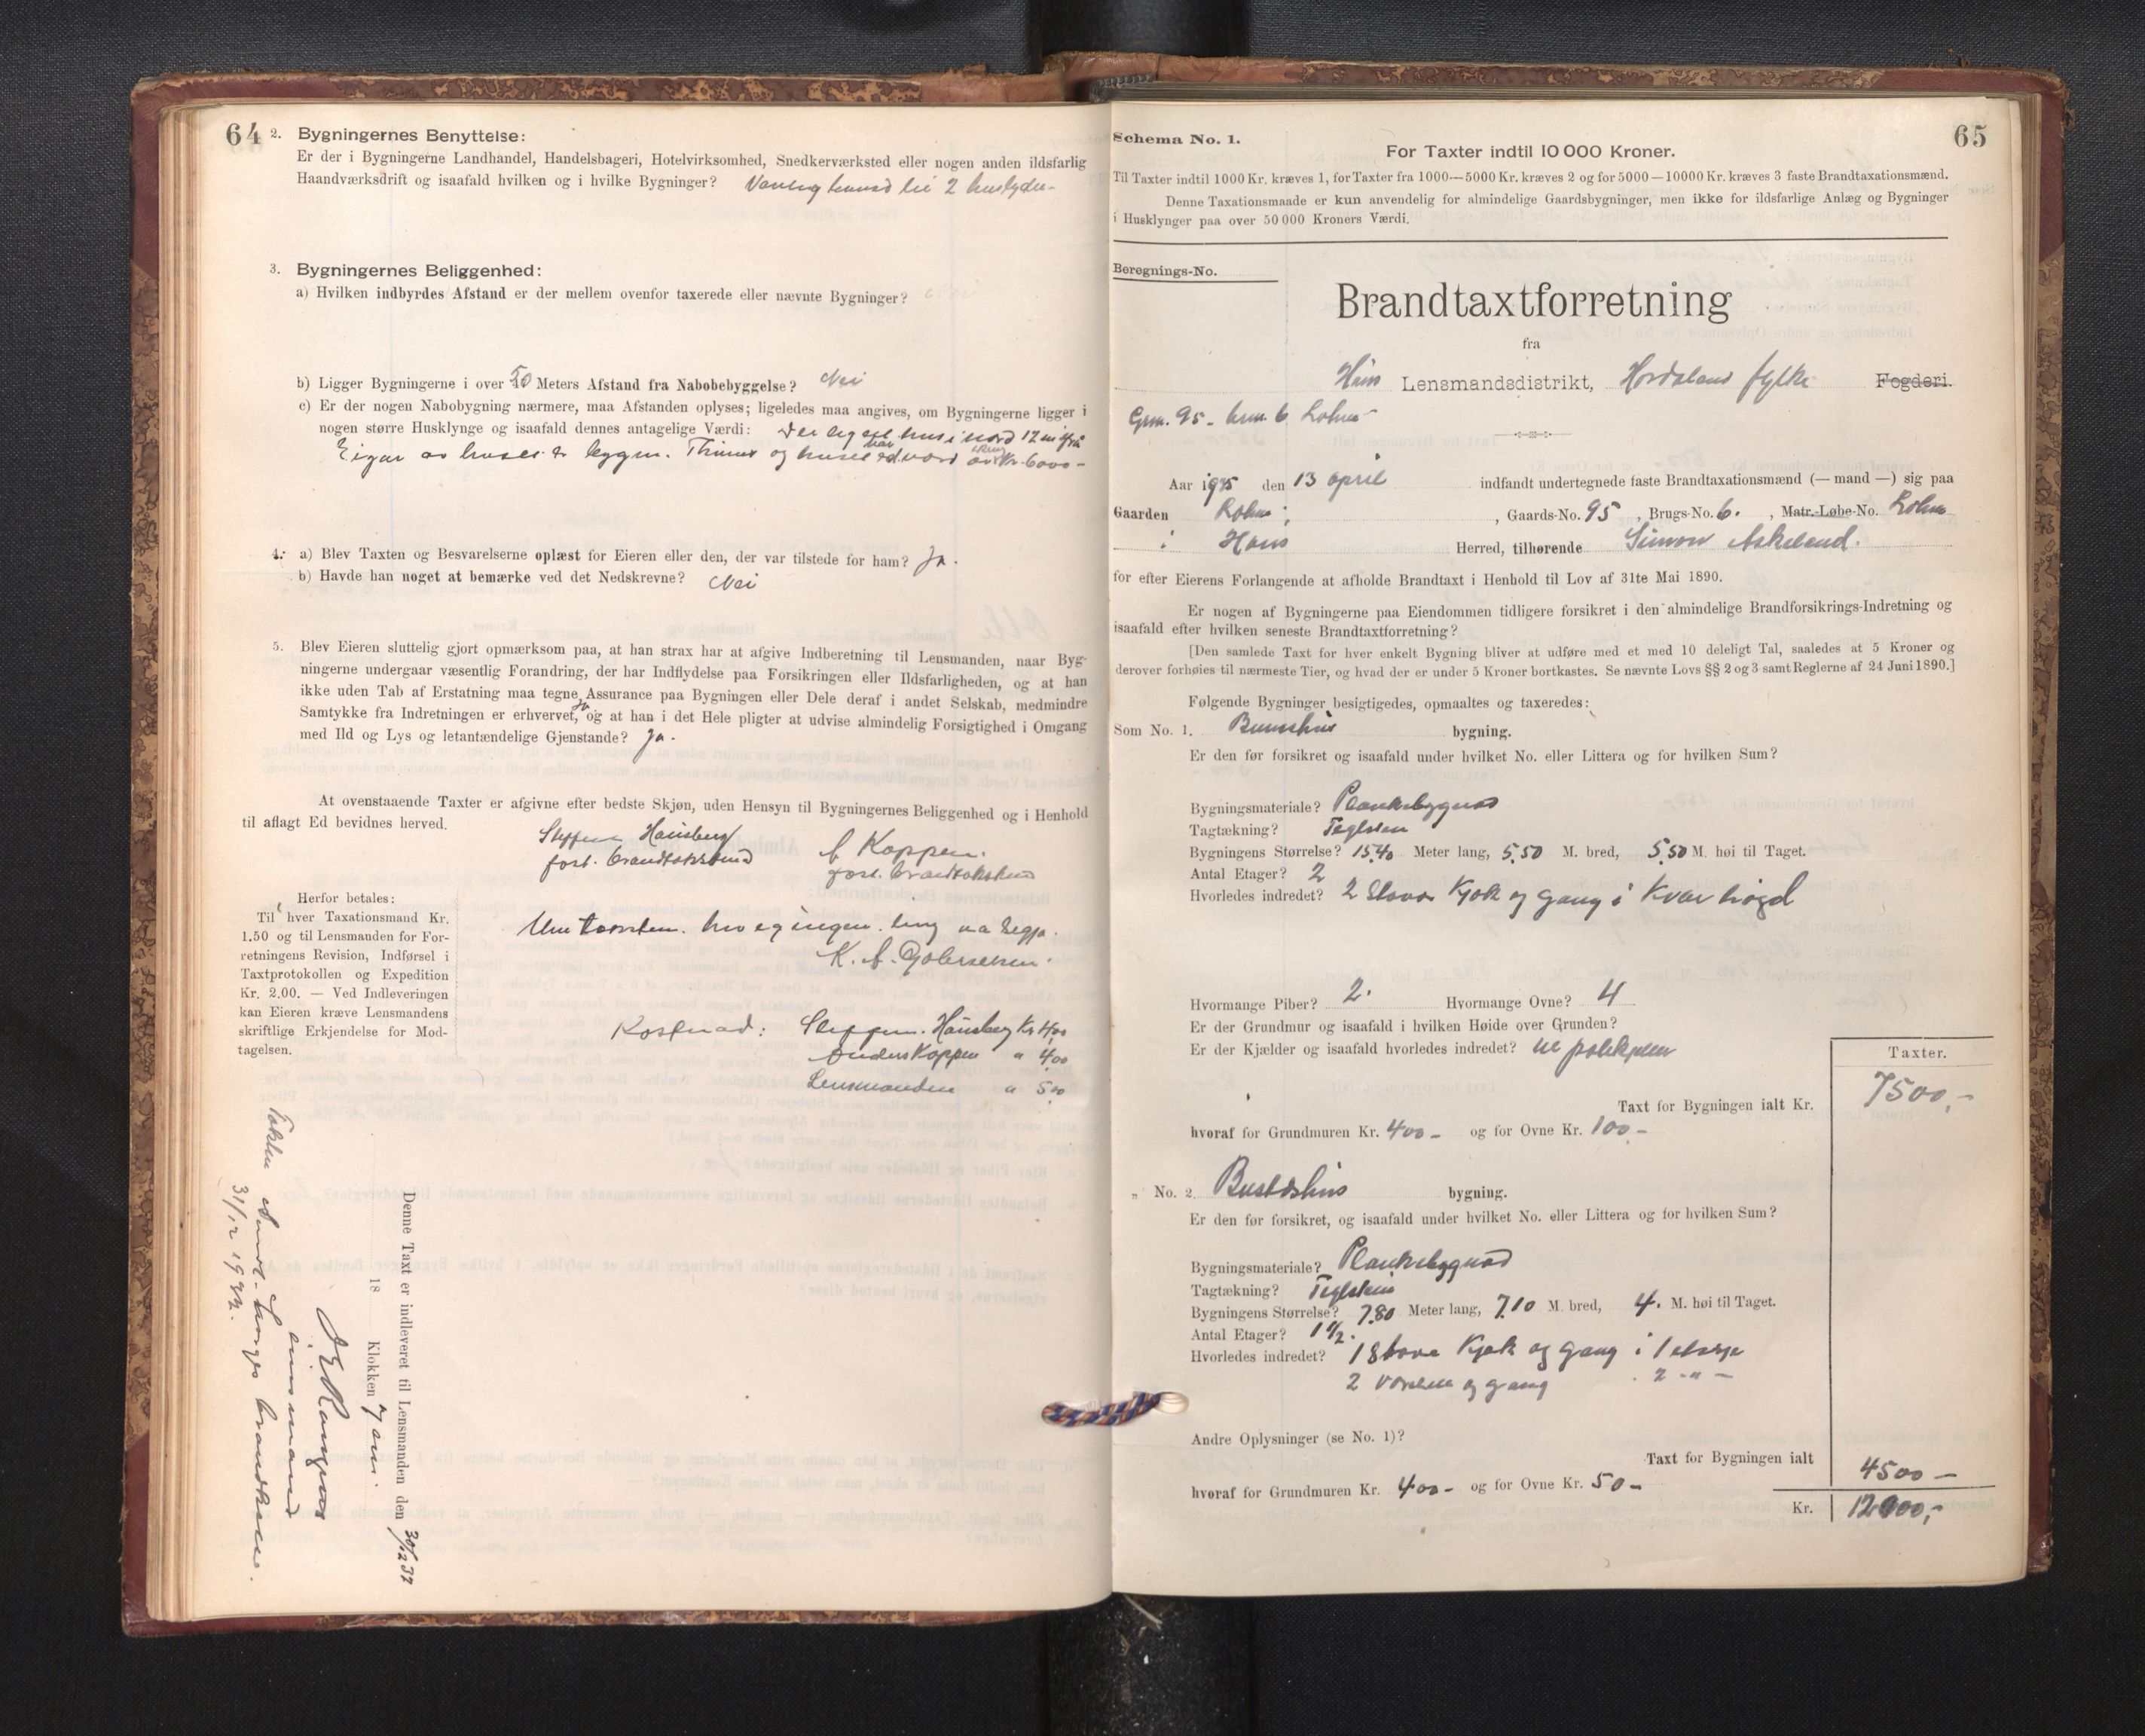 64
2. Bygningernes Benyttelse:
Er der i Bygningerne Landhandel, Handelsbageri, Hotelvirksomhed, Snedkerværksted eller nogen anden ildsfarlig
Haandværksdrift og isaafald hvilken og i hvilke Bygninger? Vanleg til 2 huslydar
3. Bygningernes Beliggenhed:
a) Hvilken indbyrdes Afstand er der mellem ovenfor taxerede eller nævnte Bygninger?
b) Ligger Bygningerne i over 50 Meters Afstand fra Nabobebyggelse? Nei
c) Er der nogen Nabobygning nærmere, maa Afstanden oplyses; ligeledes maa angives, om Bygningerne ligger i
nogen større Husklynge og isaafald dennes antagelige Værdi: Der lig eit hus i nord 12 m ifrå
Eigar av huset er og huset kr. 6000-
4. a) Blev Taxten og Besvarelserne oplæst for Eieren eller den, der var tilstede for ham? Ja.
b) Havde han noget at bemærke ved det Nedskrevne? Nei
5. Blev Eieren sluttelig gjort opmærksom paa, at han strax har at afgive Indberetning til Lensmanden, naar Byg-
ningerne undergaar væsentlig Forandring, der har Indflydelse paa Forsikringen eller Ildsfarligheden, og at han
ikke uden Tab af Erstatning maa tegne Assurance paa Bygningen eller Dele deraf i andet Selskab, medmindre
Samtykke fra Indretningen er erhvervet, Ja og at han i det Hele pligter at udvise almindelig Forsigtighed i Omgang
med Ild og Lys og letantændelige Gjenstande? Ja.
At ovenstaaende Taxter er afgivne efter bedste Skjøn, uden Hensyn til Bygningernes Beliggenhed og i Henhold
til aflagt Ed bevidnes herved.
Steffen Hausberg A Koppen.
fast. brandtakstmand fast. brandtakstmand
Herfor betales:
Til hver Taxationsmand Kr.
1.50 og til Lensmanden for For-
retningens Revision, Indførsel i
Taxtprotokollen og Expedition
Kr. 2.00. — Ved Indleveringen
kan Eieren kræve Lensmandens
skriftlige Erkjendelse for Mod-
tagelsen.
Um taksten hev eg ingen ting aa segja.
Kostnad: Steffen Hausberg Kr 4,00
Anders Koppen " 4,00
Lensmanden " 5,00
Denne Taxt er indleveret til Lensmanden den 30/12 32
18 Klokken 7 em.
lensmand
Takten sendt Norges brandkasse.
31/12 1932.
65
Schema No. 1.
For Taxter indtil 10 000 Kroner.
Til Taxter indtil 1000 Kr. kræves 1, for Taxter fra 1000—5000 Kr. kræves 2 og for 5000—10000 Kr. kræves 3 faste Brandtaxationsmænd.
Denne Taxationsmaade er kun anvendelig for almindelige Gaardsbygninger, men ikke for ildsfarlige Anlæg og Bygninger
i Husklynger paa over 50 000 Kroners Værdi.
Beregnings-No.
Brandtaxtforretning
fra
Haus Lensmandsdistrikt, Hordaland fylke Fogderi.
Grm. 95 - brm. 6 Lohne
Aar den 13 april indfandt undertegnede faste Brandtaxationsmænd (— mand —) sig paa
Gaarden Lohne, Gaards-No. 95, Brugs-No. 6., Matr.-Løbe-No. Lohne
i Haus Herred, tilhørende Simon Askeland.
for efter Eierens Forlangende at afholde Brandtaxt i Henhold til Lov af 31te Mai 1890.
Er nogen af Bygningerne paa Eiendommen tidligere forsikret i den almindelige Brandforsikrings-Indretning og
isaafald efter hvilken seneste Brandtaxtforretning?
[Den samlede Taxt for hver enkelt Bygning bliver at udføre med et med 10 deleligt Tal, saaledes at 5 Kroner og
derover forhøies til nærmeste Tier, og hvad der er under 5 Kroner bortkastes. Se nævnte Lovs §§ 2 og 3 samt Reglerne af 24 Juni 1890.]
Følgende Bygninger besigtigedes, opmaaltes og taxeredes:
Som No. 1. bygning.
Er den før forsikret og isaafald under hvilket No. eller Littera og for hvilken Sum?
Bygningsmateriale? Plankebygnad
Tagtækning? Teglstein
Bygningens Størrelse? 15.40 Meter lang, 5.50 M. bred, 5.50 M. høi til Taget.
Antal Etager? 2
Hvorledes indredet? 2 Stovor Kjøk og gang i kvar høgd
Hvormange Piber? 2. Hvormange Ovne? 4
Er der Grundmur og isaafald i hvilken Høide over Grunden?
Er der Kjælder og isaafald hvorledes indredet?
Taxter.
Taxt for Bygningen ialt Kr. 7500,-
hvoraf for Grundmuren Kr. 400- og for Ovne Kr. 100-
„ No. 2. Bustadhus bygning.
Er den før forsikret, og isaafald under hvilket No. eller Littera og for hvilken Sum?
Bygningsmateriale? Plankebygnad
Tagtækning? Teglstein
Bygningens Størrelse? 7.80 Meter lang, 7.10 M. bred, 4. M. høi til Taget.
Antal Etager? 1 1/2.
Hvorledes indredet? 1 Stova Kjøk og gang i 1 etasje
2 Værelse og gang . 2 - " -
Andre Oplysninger (se No. 1)?
Taxt for Bygningen ialt 4500-
hvoraf for Grundmuren Kr. 400- og for Ovne Kr. 50-
Kr. 12000,-